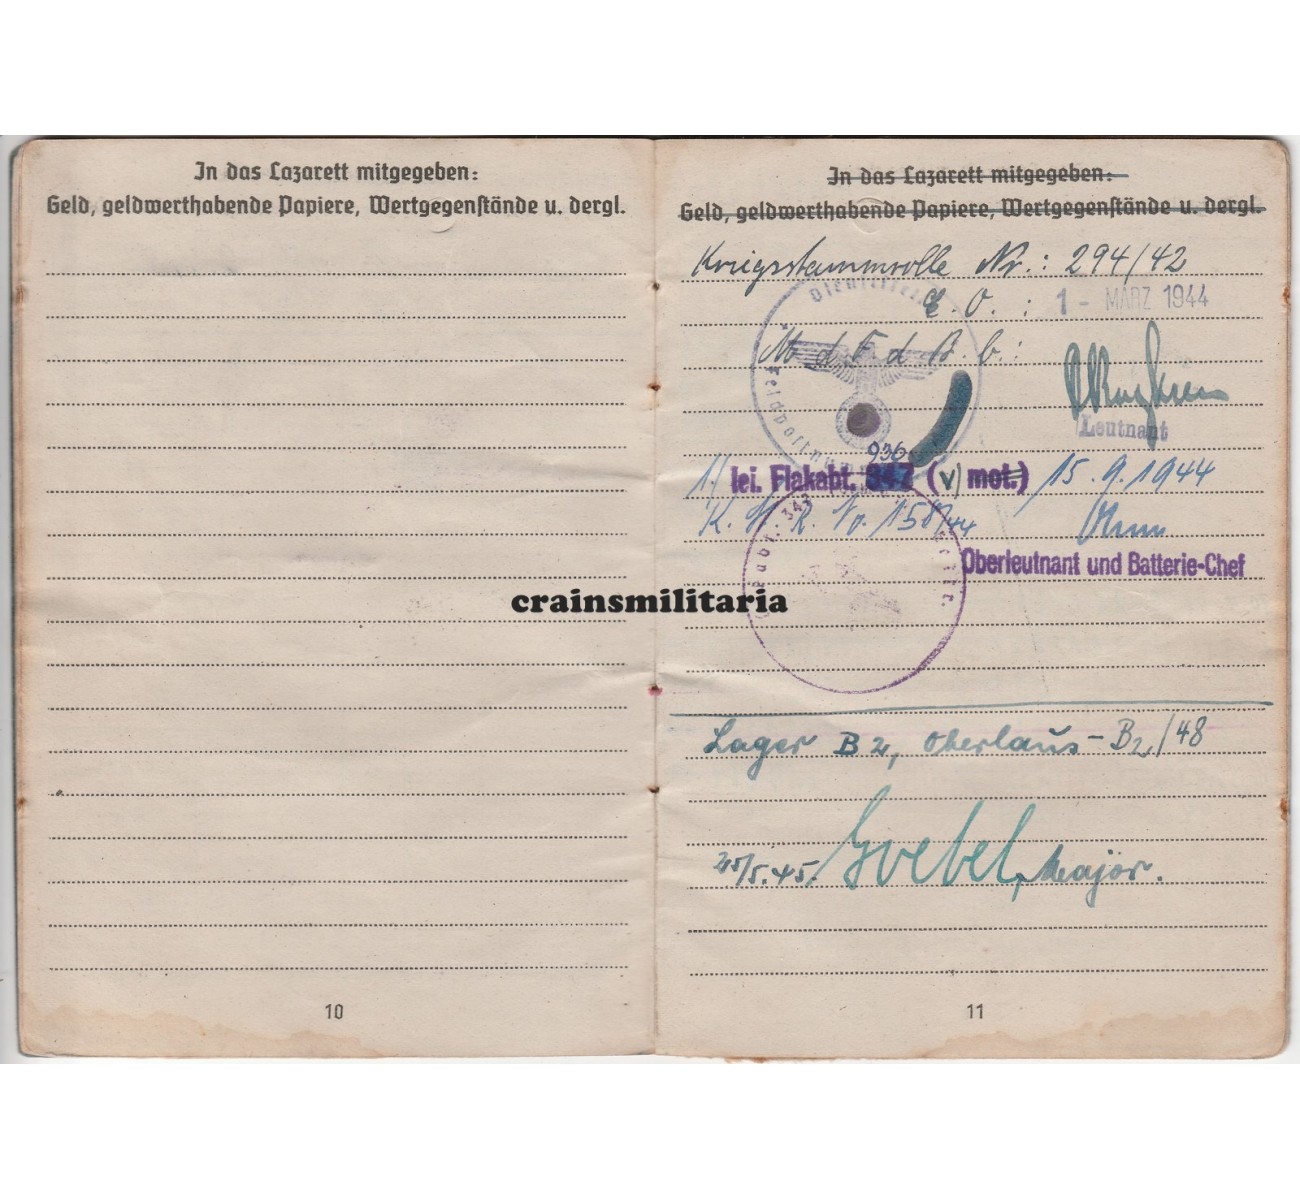 In das Lazarett mitgegeben:
Geld, geldwerthabende Papiere, Wertgegenstände u. dergl.
10
In das Lazarett mitgegeben:
Geld, geldwerthabende Papiere, Wertgegenstände u. dergl.
Kriegsstammrolle Nr.: 294/42
E. O. : 1 - MÄRZ 1944
M d F d B. b.:
Leutnant
936
1./ lei. Flakabt. 347 (v) mot.) 15.9.1944
K. St. R. No. 158/44
Oberleutnant und Batterie-Chef
crainsmilitaria
Lager B 2, Oberlaus - B2/48
25/5.45. Goebel, Major.
11